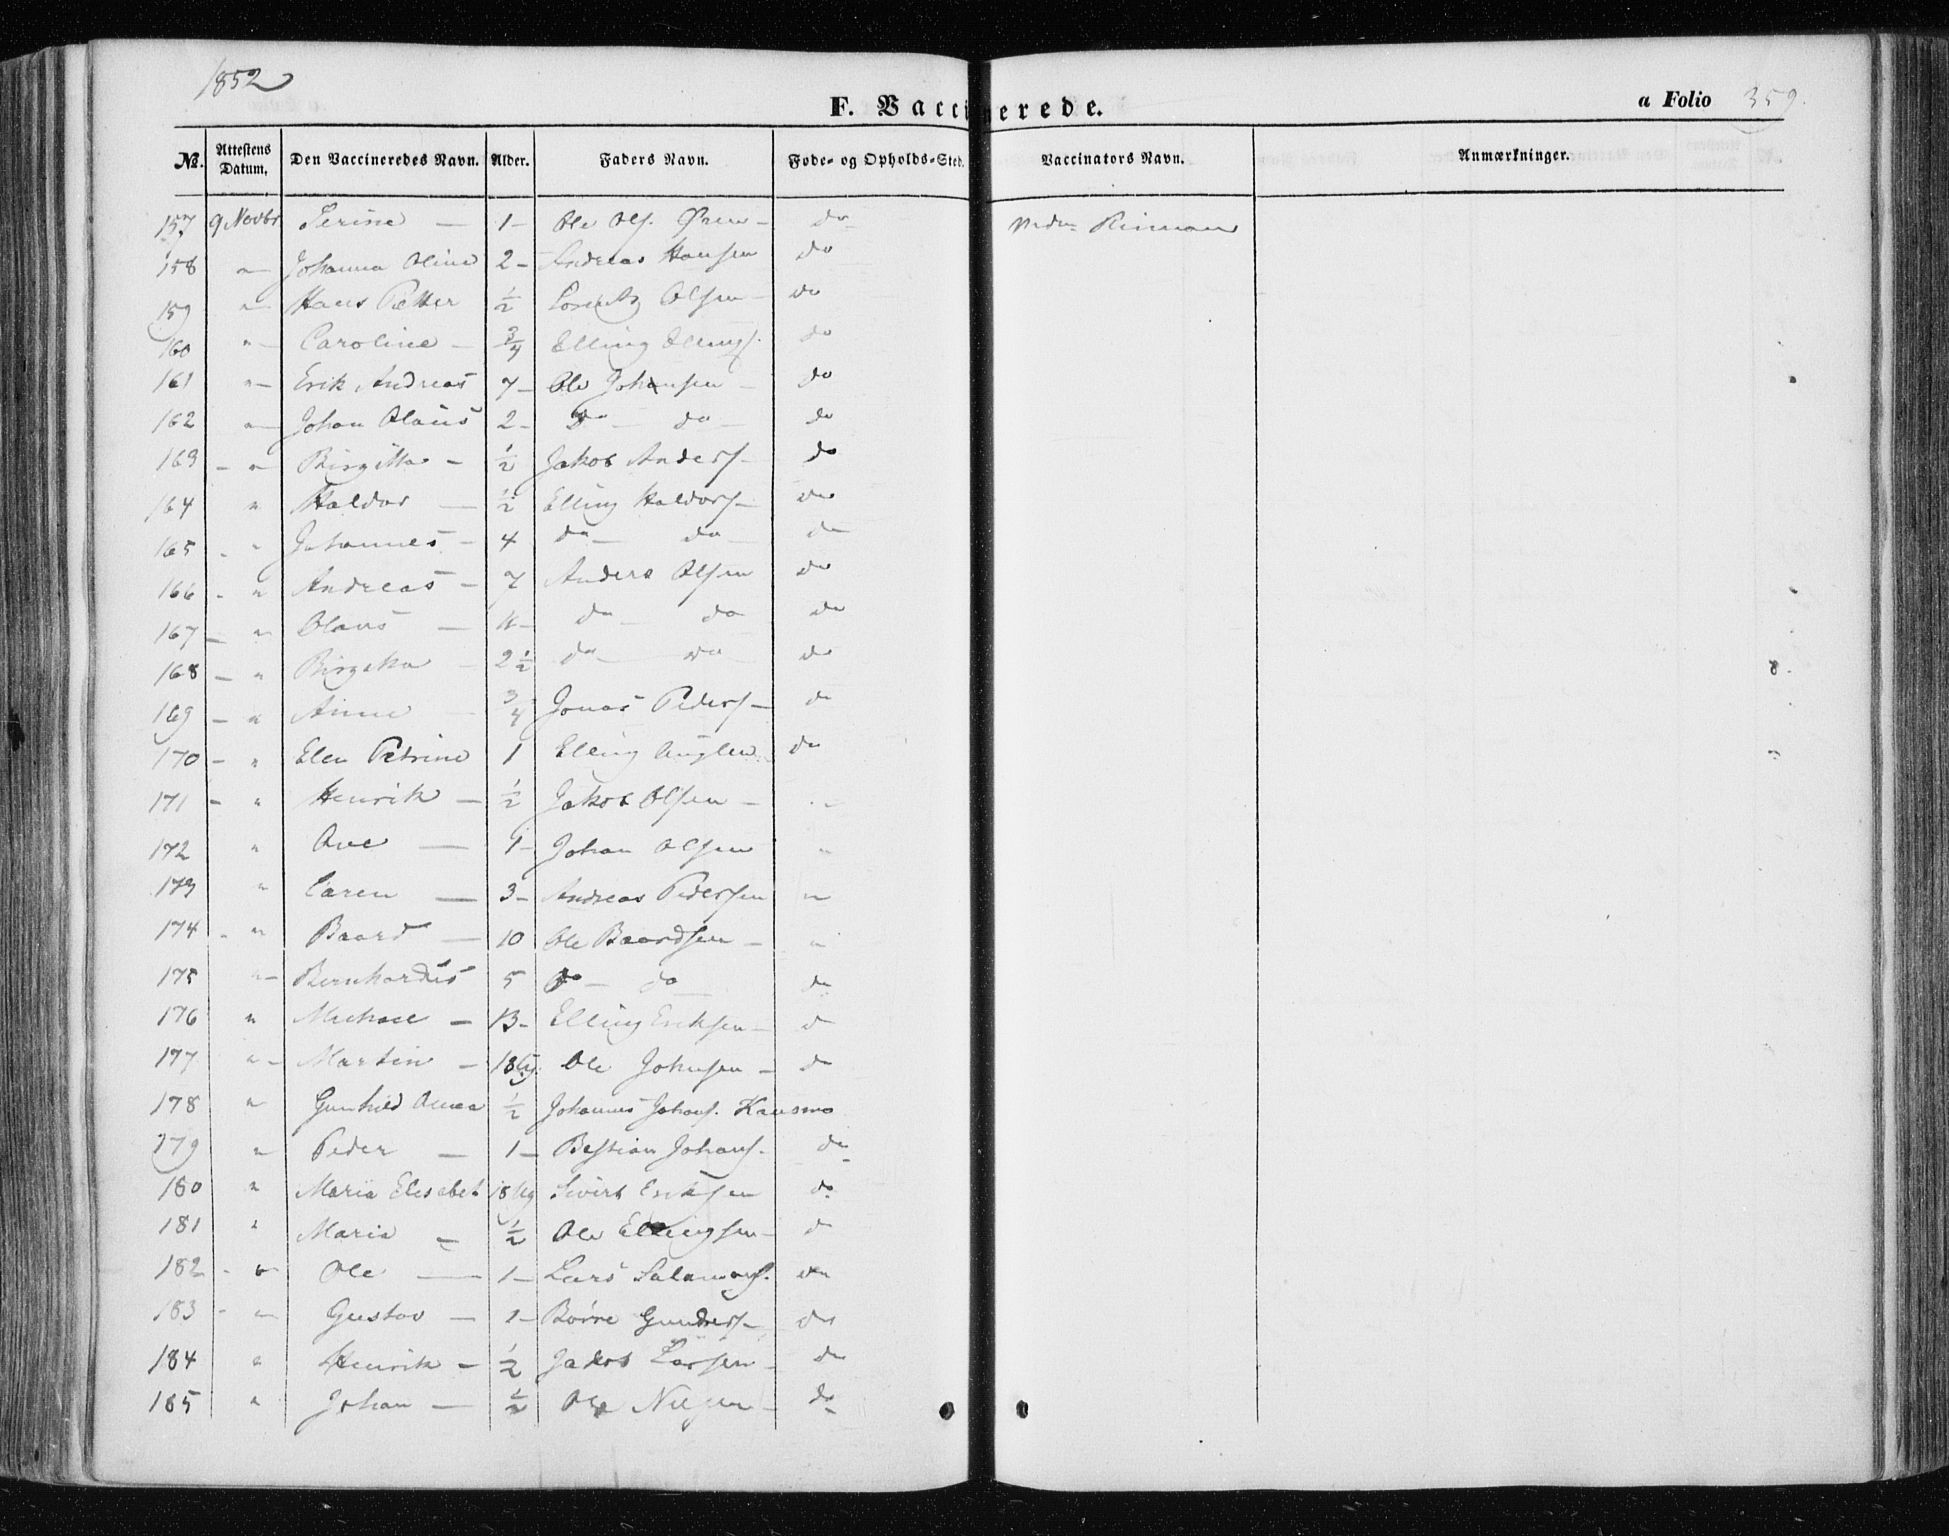 1852
F. Vaccinerede.
a Folio 359.
No. Attestens Datum. Den Vaccineredes Navn. Alder. Faders Navn. Føde- og Opholds-Sted. Vaccinators Navn. Anmærkninger.
157 9 Novbr Serine — 1 - Ole Ols. Øien - do
158 " Johanna Oline 2 - Andreas Hansen do
159 " Hans Petter ½ Lorentz Olsen - do
160 " Caroline - ¾ Elling Ellings. do
161 " Erik Andreas 7 - Ole Johansen - do
162 " Johan Olaus 2 - Do - do - do
163 - " Birgitta - ½ Jakob Anders - do
164 " Haldor — ½ Elling Haldors - do
165 - " Johannes - 4 do - do - do
166 - " Andreas - 7 Anders Olsen do
167 - " Olaus — do - do do
168 - " Birgitta - 2½ do - do - do
169 - " Anne — ¾ Jonas Peders - do
170 - " Elen Petrine 1 Elling do
171 - " Henrik - ½ Jakob Olsen - "
172 " Ove — 1 - Johan Olsen "
173 " Caren — 3 - Andreas Pedersen "
174 - " Baard — 10 Ole Baardsen - "
175 " - Bernhardus 5 do - do - do
176 " Michael - 13 - Elling Eriksen - d
177 " - Martin - 18 Ug. Ole Johnsen - d
178 " Gunhild ½ Johannes Johans. Kausmo
179 " Peder — 1 - Bastian Johans. do
180 " Maria Elisabet 18 Ug Sivert Eriksen do
181 " Maria - ½ Ole Ellingsen - d
182 - " Ole — 1 - Lars Salamons. do
183 - " Gustav — 1 - Børre Gunders - do
184 " Henrik - ½ Jakob Larsen - do
185 " Johan — ½ Ole - do